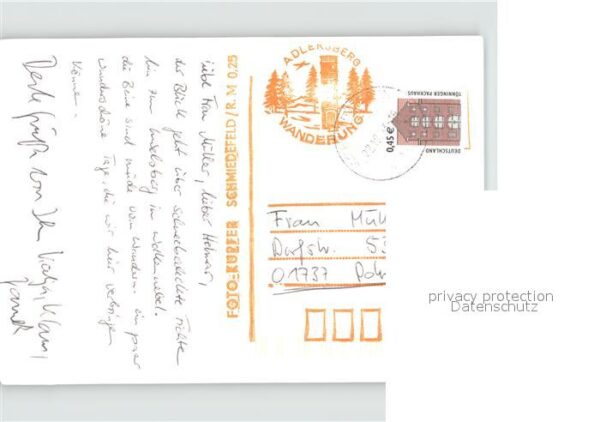 Liebe Frau Müller, lieber Helmar,
der Blick geht über schneebedeckte Fichten
bin zum Inselsberg im Wolkennebel.
die Beine sind müde vom Wandern. Ein paar
wunderschöne Tage, die wir hier verbringen
können.
Herzliche Grüße von
FOTO-KUPFER SCHMIEDEFELD/R. M 0,25
ADLERSBERG
WANDERUNG
0,45 €
DEUTSCHLAND
TÖNNINGER PACKHAUS
Frau Mül
Dorfstr. 53
01737
privacy protection
Datenschutz